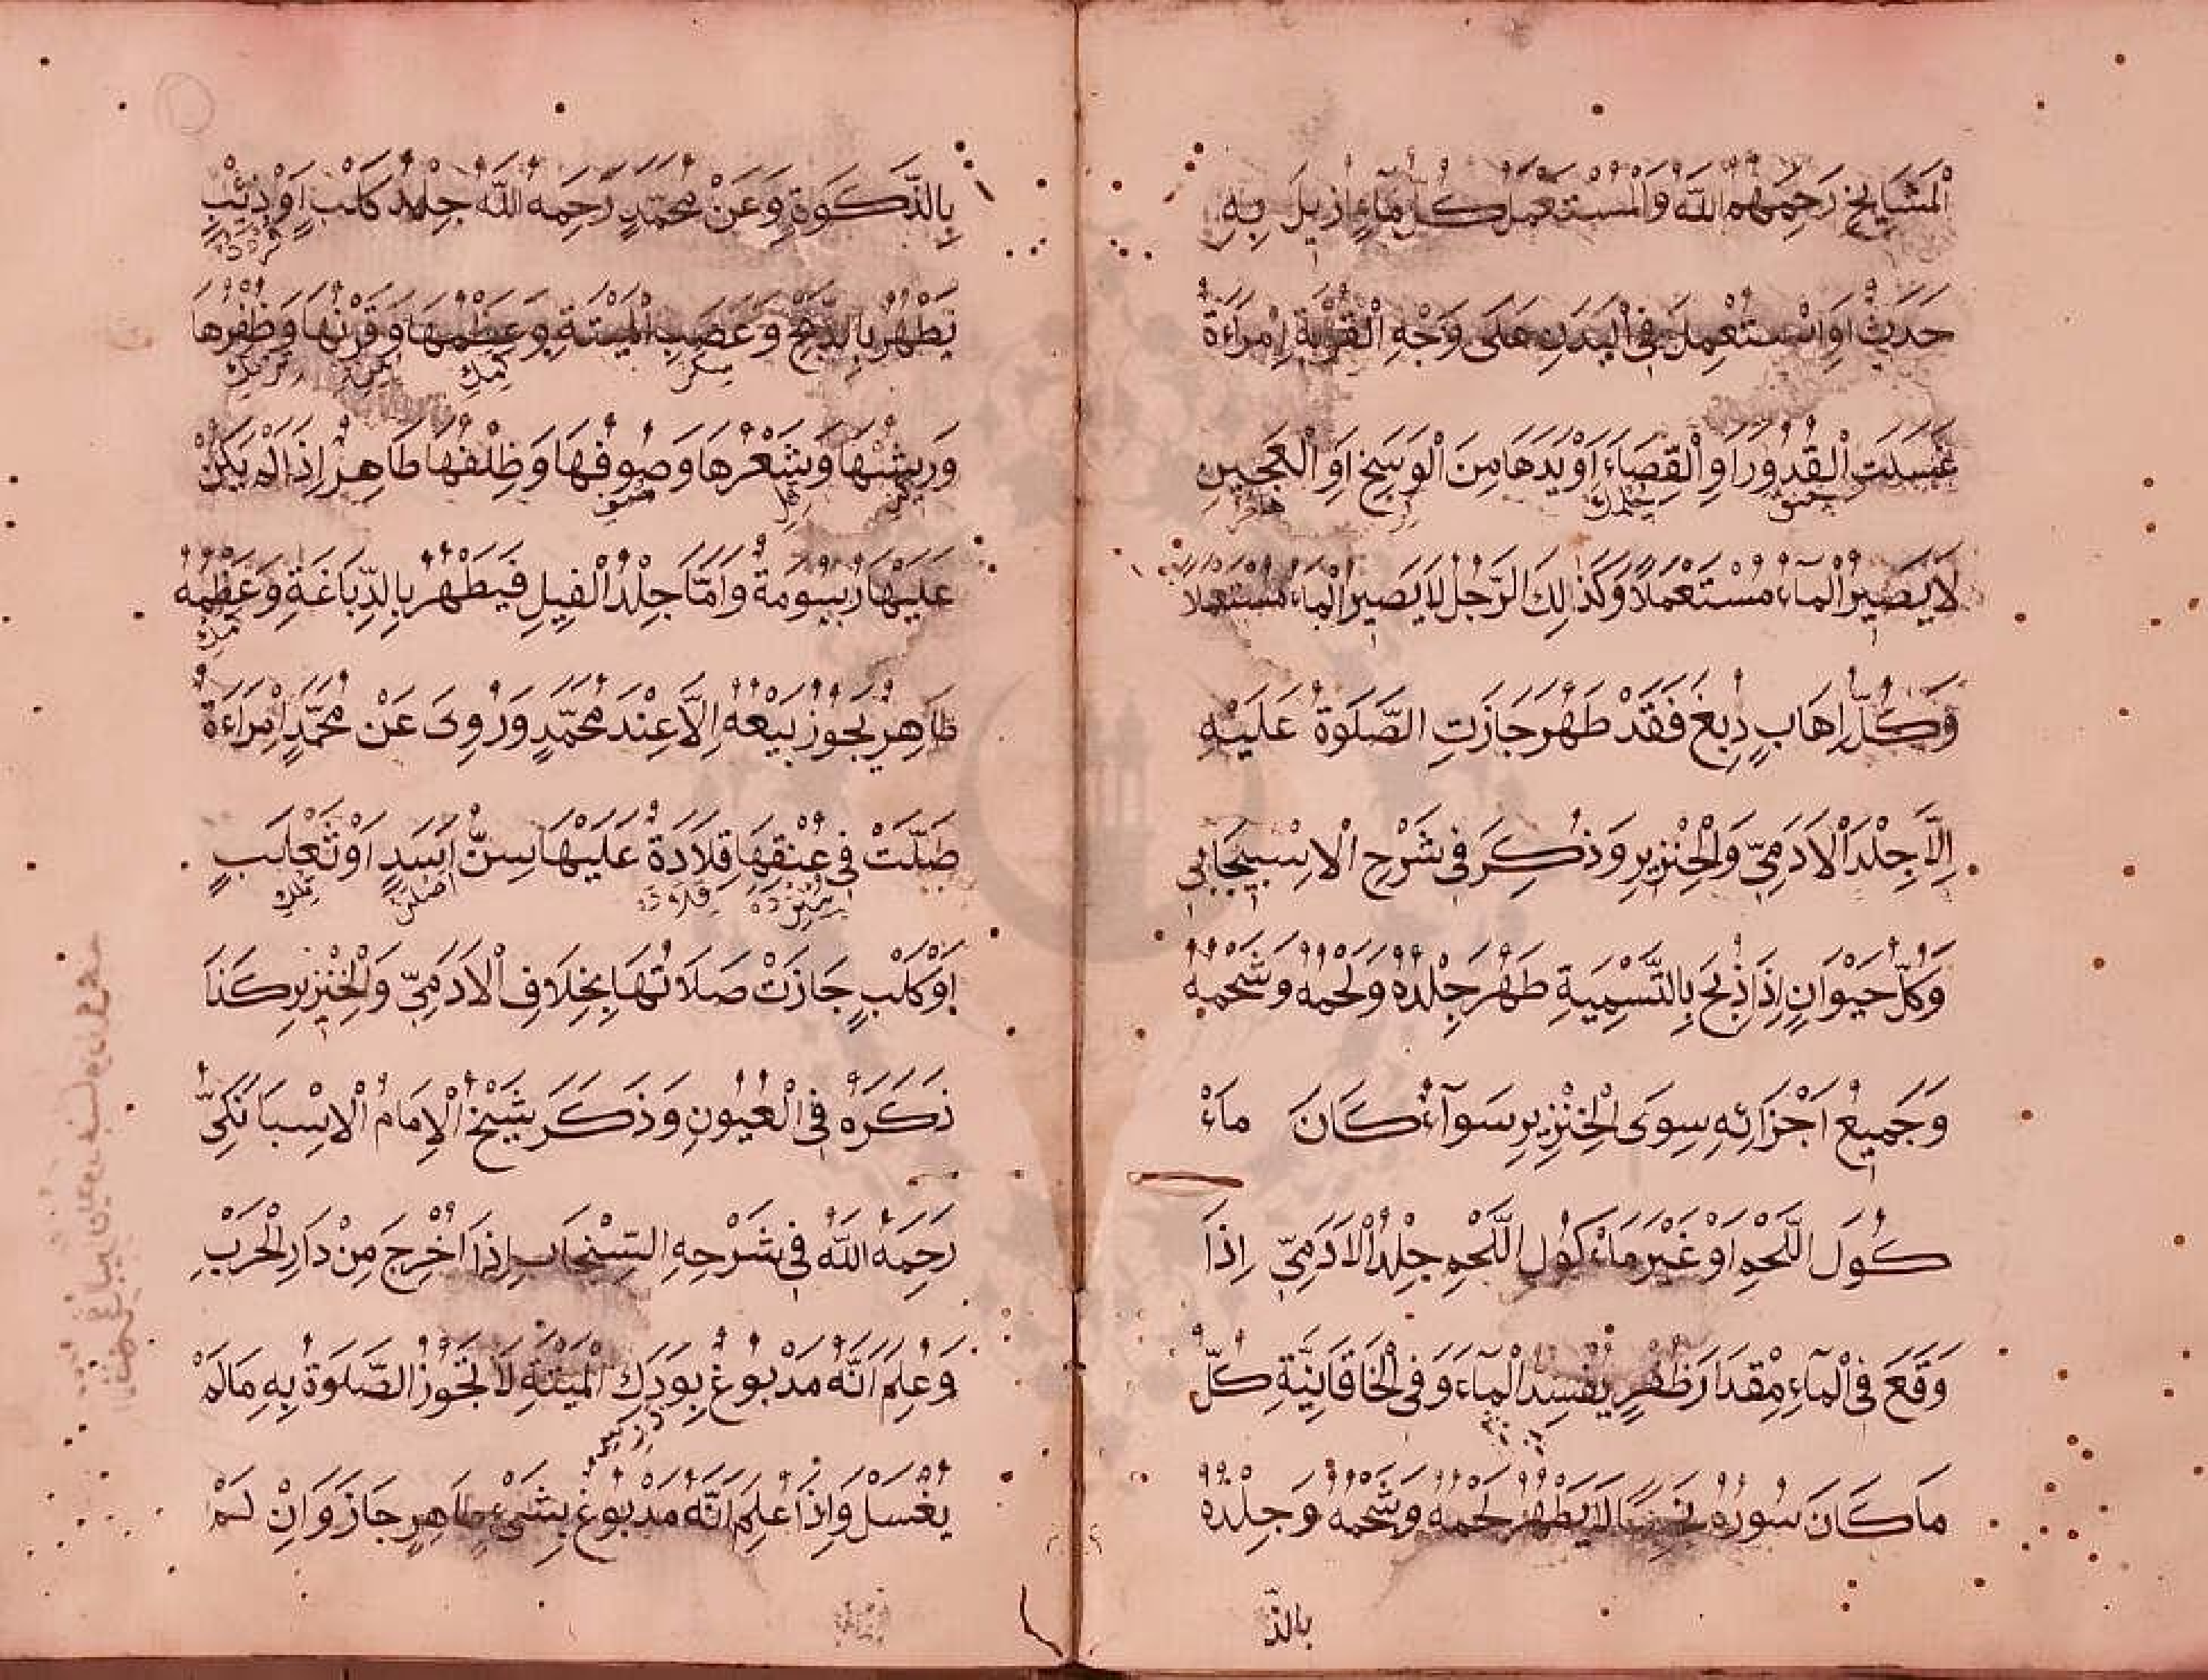 الْمَشَايِخِ رَحِمَهُمُ اللّٰهُ وَالْمُسْتَعْمَلُ كُلُّ مَاءٍ اُزِيلَ بِهِ
حَدَثٌ اَوِ اسْتُعْمِلَ فِي الْبَدَنِ عَلَى وَجْهِ الْقُرْبَةِ اِمْرَاَةٌ
غَسَلَتِ الْقُدُورَ اَوِ الْقِصَاعَ اَوْ يَدَهَا مِنَ الْوَسَخِ اَوِ الْعَجِينِ
لَا يَصِيرُ الْمَآءُ مُسْتَعْمَلًا وَكَذٰلِكَ الرَّجُلُ لَا يَصِيرُ الْمَاءُ مُسْتَعْمَلًا
وَكُلُّ اِهَابٍ دُبِغَ فَقَدْ طَهُرَ جَازَتِ الصَّلٰوةُ عَلَيْهِ
اِلَّا جِلْدَ الْاٰدَمِيِّ وَالْخِنْزِيرِ وَذُكِرَ فِي شَرْحِ الْاِسْبِيجَابِي
وَكُلُّ حَيْوَانٍ اِذَا ذُبِحَ بِالتَّسْمِيَةِ طَهُرَ جِلْدُهُ وَلَحْمُهُ وَشَحْمُهُ
وَجَمِيعُ اَجْزَائِهِ سِوَى الْخِنْزِيرِ سَوَآءٌ كَانَ مَاءْ
كُولَ اللَّحْمِ اَوْ غَيْرَ مَاءْكُولِ اللَّحْمِ جِلْدُ الْاٰدَمِيِّ اِذَا
وَقَعَ فِي الْمَآءِ مِقْدَارَ ظُفْرٍ يُفْسِدُ الْمَآءَ وَفِي الْخَاقَانِيَّةِ كُلُّ
مَا كَانَ سُورُهُ نَجِسًا لَا يَطْهُرُ لَحْمُهُ وَشَحْمُهُ وَجِلْدُهُ
بالذّ
بِالذَّكٰوةِ وَعَنْ مُحَمَّدٍ رَحِمَهُ اللّٰهُ جِلْدُ كَلْبٍ اَوْ ذِئْبٍ
يَطْهُرُ بِالذَّبْحِ وَعَصَبِ الْمَيْتَةِ وَعَظْمُهَا وَقَرْنُهَا وَظُفْرُهَا
وَرِيشُهَا وَشَعْرُهَا وَصُوفُهَا وَظِلْفُهَا طَاهِرٌ اِذَا لَمْ يَكُنْ
عَلَيْهَا رُسُومَةٌ وَاَمَّا جِلْدُ الْفِيلِ فَيَطْهُرُ بِالدِّبَاغَةِ وَعَظْمُهُ
طَاهِرٌ يَجُوزُ بَيْعُهُ اِلَّا عِنْدَ مُحَمَّدٍ وَرُوِيَ عَنْ مُحَمَّدٍ اِمْرَاَةٌ
صَلَّتْ فِي عُنْقِهَا قِلَادَةٌ عَلَيْهَا سِنُّ اَسَدٍ اَوْ ثَعْلَبٍ
اَوْ كَلْبٍ جَازَتْ صَلَاتُهَا بِخِلَافِ الْاٰدَمِيِّ وَالْخِنْزِيرِ كَذَا
ذَكَرَهُ فِي الْعُيُونِ وَذَكَرَ شَيْخُ الْاِمَامُ الْاِسْبَانَكِيُّ
رَحِمَهُ اللّٰهُ فِي شَرْحِهِ السِّنْجَابِ اِذَا اُخْرِجَ مِنْ دَارِ الْحَرْبِ
وَعُلِمَ اَنَّهُ مَدْبُوغٌ بِوَدَكِ الْمَيْتَةِ لَا تَجُوزُ الصَّلٰوةُ بِهِ مَا لَمْ
يُغْسَلْ وَاِذَا عُلِمَ اَنَّهُ مَدْبُوغٌ بِشَيْءٍ طَاهِرٍ جَازَ وَاِنْ لَمْ